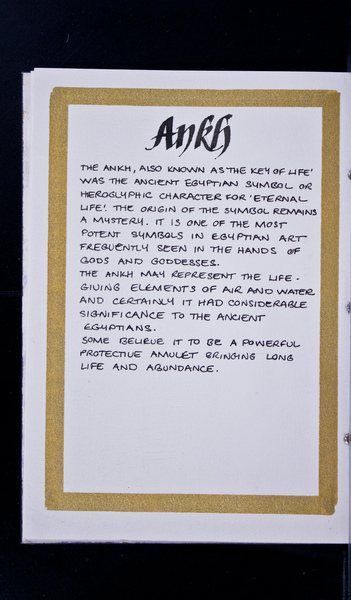 Ankh
THE ANKH, ALSO KNOWN AS 'THE KEY OF LIFE'
WAS THE ANCIENT EGYPTIAN SYMBOL OR
HEROGLYPHIC CHARACTER FOR 'ETERNAL
LIFE'. THE ORIGIN OF THE SYMBOL REMAINS
A MYSTERY. IT IS ONE OF THE MOST
POTENT SYMBOLS IN EGYPTIAN ART
FREQUENTLY SEEN IN THE HANDS OF
GODS AND GODDESSES.
THE ANKH MAY REPRESENT THE LIFE-
GIVING ELEMENTS OF AIR AND WATER
AND CERTAINLY IT HAD CONSIDERABLE
SIGNIFICANCE TO THE ANCIENT
EGYPTIANS.
SOME BELIEVE IT TO BE A POWERFUL
PROTECTIVE AMULET BRINGING LONG
LIFE AND ABUNDANCE.